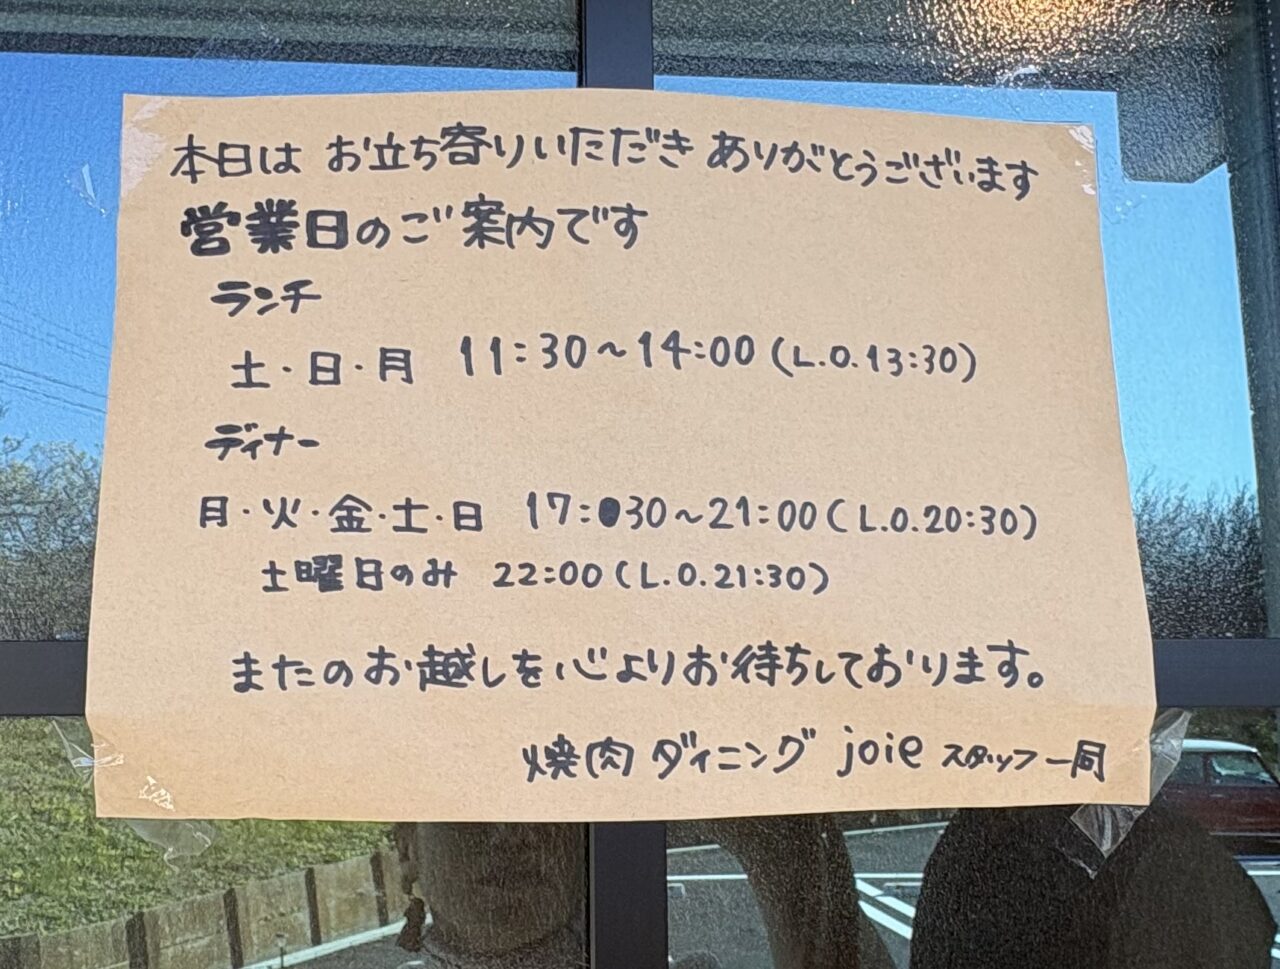 本日は お立ち寄りいただき ありがとうございます
営業日のご案内です
ランチ
土・日・月 11:30～14:00(L.O.13:30)
ディナー
月・火・金・土・日 17:30～21:00(L.O.20:30)
土曜日のみ 22:00(L.O.21:30)
またのお越しを心よりお待ちしております。
焼肉ダイニング joie スタッフ一同